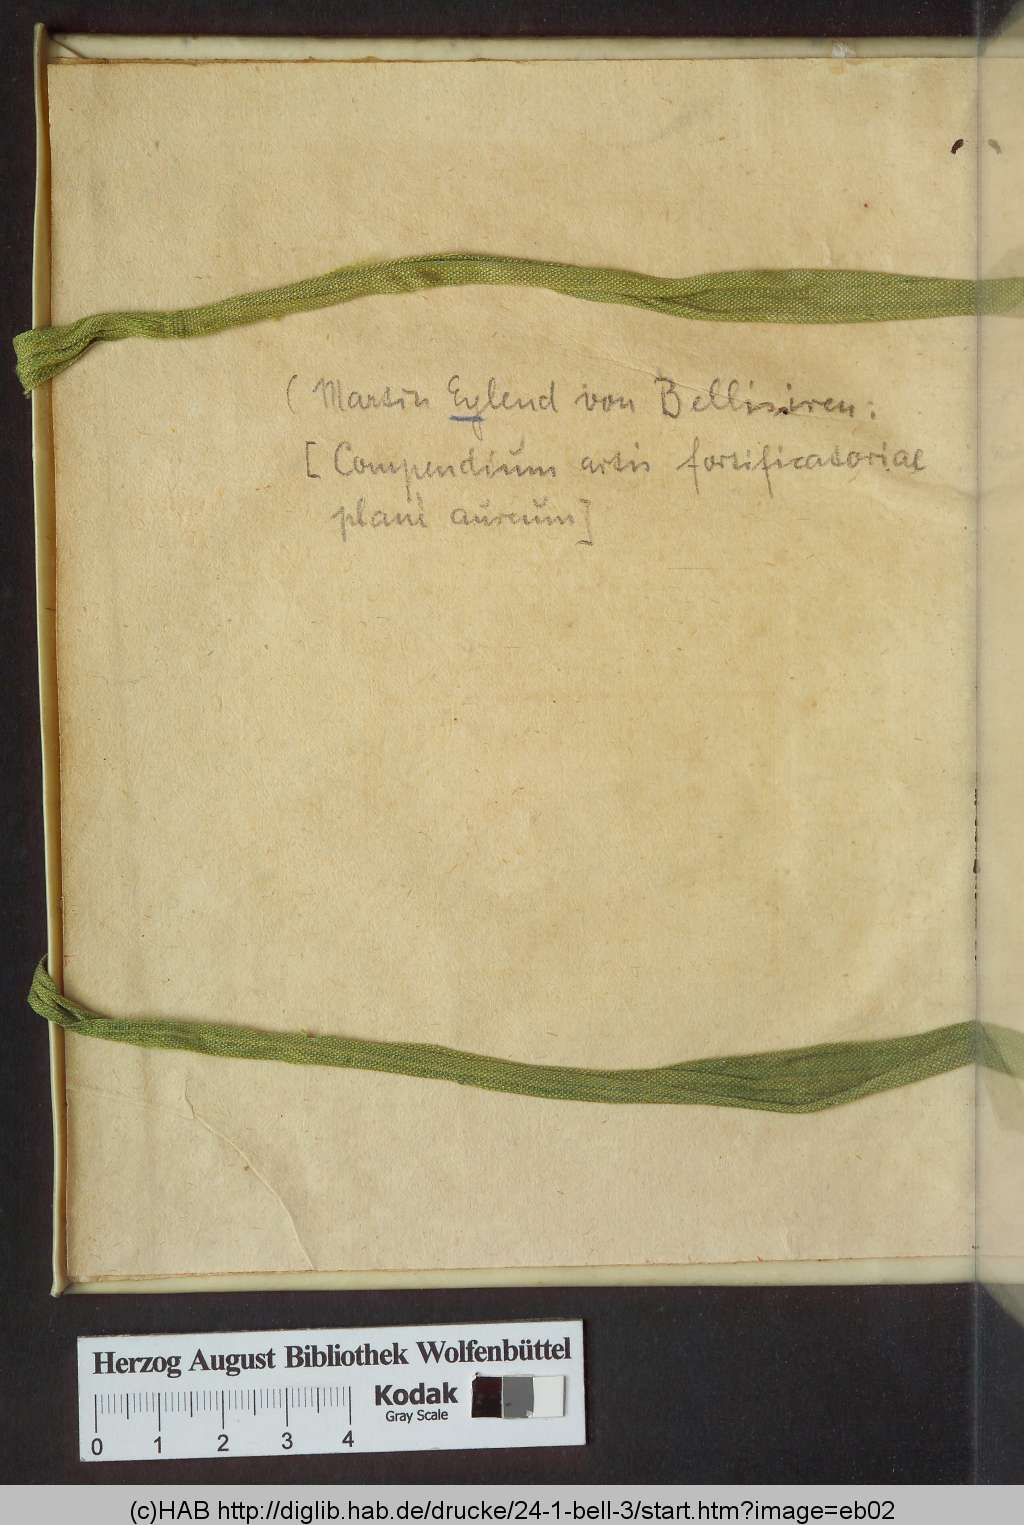 ( Martin Eylend von Bellisiren:
[ Compendium artis fortificatoriae
planè aureum]
Herzog August Bibliothek Wolfenbüttel
Kodak
Gray Scale
0 1 2 3 4
(c)HAB http://diglib.hab.de/drucke/24-1-bell-3/start.htm?image=eb02